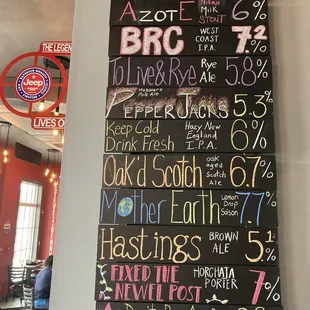 THE LEGEND
Jeep
LIVES O
AZOTE Nitro Milk Stout 6%
BRC WEST COAST I.P.A. 7.2%
To Live & Rye Rye Ale 5.8%
PEPPER JACKS Habanero Pale Ale 5.3%
Keep Cold Drink Fresh Hazy New England I.P.A. 6%
Oak'd Scotch oak aged Scotch Ale 6.7%
Mother Earth Lemon Drop Saison 7.7%
Hastings BROWN ALE 5.1%
FIXED THE NEWEL POST HORCHATA PORTER 7%